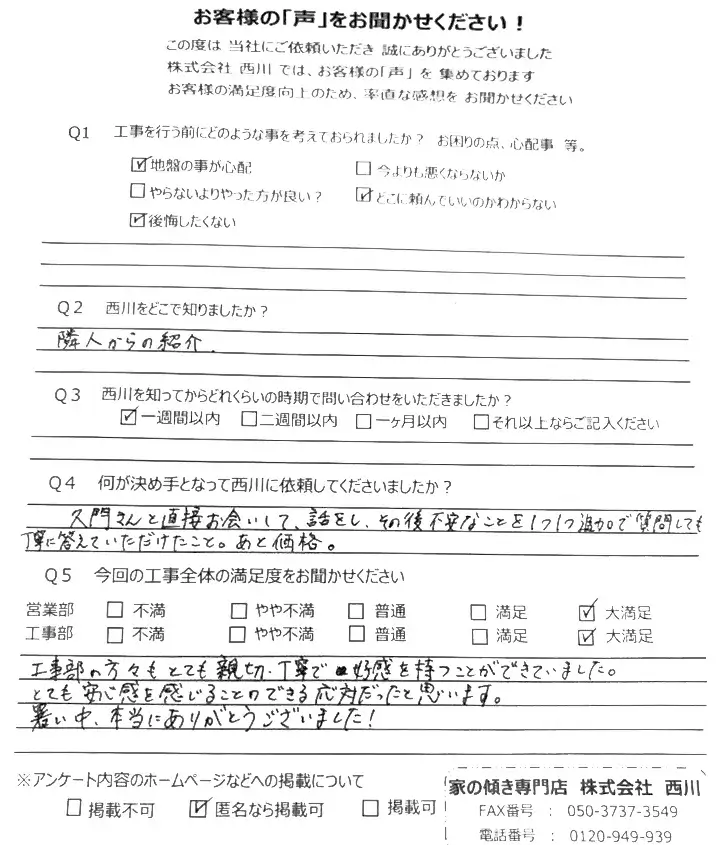 お客様の「声」をお聞かせください！
この度は 当社にご依頼いただき 誠にありがとうございました
株式会社 西川 では、お客様の「声」を 集めております
お客様の満足度向上のため、率直な感想を お聞かせください
Q1 工事を行う前にどのような事を考えておられましたか？ お困りの点、心配事 等。
☑地盤の事が心配 □今よりも悪くならないか
□やらないよりやった方が良い？ ☑どこに頼んでいいのかわからない
☑後悔したくない
Q2 西川をどこで知りましたか？
隣人からの紹介.
Q3 西川を知ってからどれくらいの時期で問い合わせをいただきましたか？
☑一週間以内 □二週間以内 □一ヶ月以内 □それ以上ならご記入ください
Q4 何が決め手となって西川に依頼してくださいましたか？
久門さんと直接お会いして、話をし、その後不安なことを1つ1つ追加で質問しても
丁寧に答えていただけたこと。あと価格。
Q5 今回の工事全体の満足度をお聞かせください
営業部 □ 不満 □ やや不満 □ 普通 □ 満足 ☑ 大満足
工事部 □ 不満 □ やや不満 □ 普通 □ 満足 ☑ 大満足
工事部の方々もとても親切・丁寧で好感を持つことができていました。
とても安心感を感じることのできる応対だったと思います。
暑い中、本当にありがとうございました！
※アンケート内容のホームページなどへの掲載について
□ 掲載不可 ☑ 匿名なら掲載可 □ 掲載可
家の傾き専門店 株式会社 西川
FAX番号 : 050-3737-3549
電話番号 : 0120-949-939